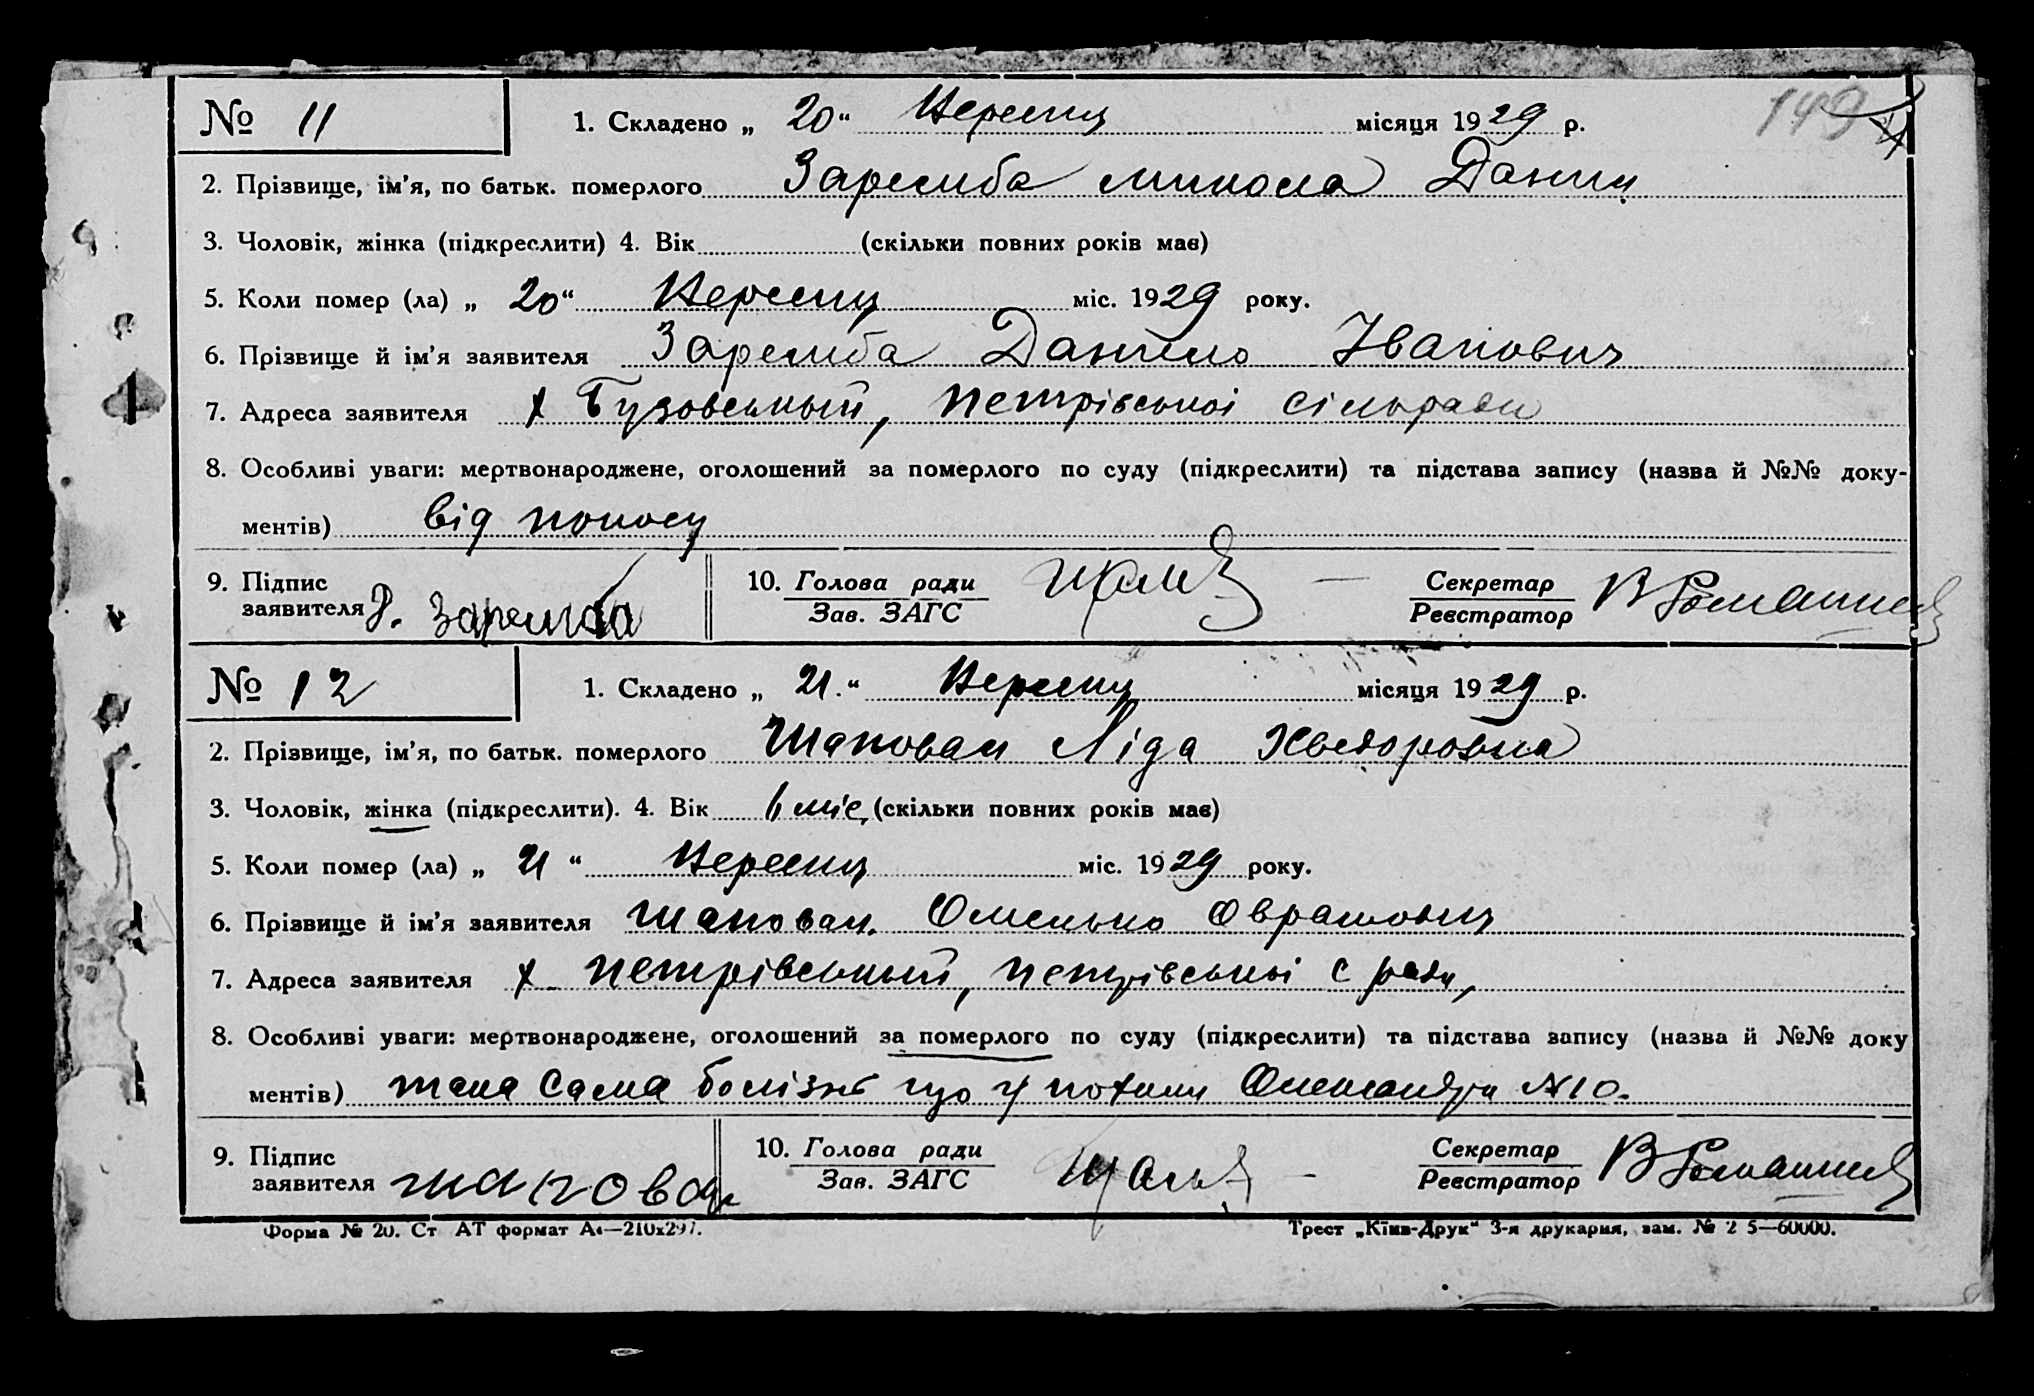 № 11 1. Складено „ 20 “ Вересня місяця 1929 р. 149
2. Прізвище, ім'я, по батьк. померлого Заремба Микола Данил
3. Чоловік, жінка (підкреслити) 4. Вік (скільки повних років має)
5. Коли помер (ла) „ 20 “ Вересня міс. 1929 року.
6. Прізвище й ім'я заявителя Заремба Данило Іванович
7. Адреса заявителя х Бузовський, Петрівської сільради
8. Особливі уваги: мертвонароджене, оголошений за померлого по суду (підкреслити) та підстава запису (назва й №№ доку-
ментів) від поносу
9. Підпис заявителя Д. Заремба 10. Голова ради Зав. ЗАГС Секретар Реєстратор В
№ 12 1. Складено „ 21. “ Вересня місяця 1929 р.
2. Прізвище, ім'я, по батьк. померлого Шаповал Ліда Хведоровна
3. Чоловік, жінка (підкреслити). 4. Вік міс. (скільки повних років має)
5. Коли помер (ла) „ 21 “ Вересня міс. 1929 року.
6. Прізвище й ім'я заявителя Шаповал. Омелько Оврамович
7. Адреса заявителя х Петрівський, Петрівської с ради,
8. Особливі уваги: мертвонароджене, оголошений за померлого по суду (підкреслити) та підстава запису (назва й №№ доку
ментів) така сама болізнь що у №10.
9. Підпис заявителя шаповал 10. Голова ради Зав. ЗАГС Секретар Реєстратор В
Форма № 20. Ст АТ формат А4—210х297. Трест „Київ-Друк“ 3-я друкарня, зам. № 2 5—60000.